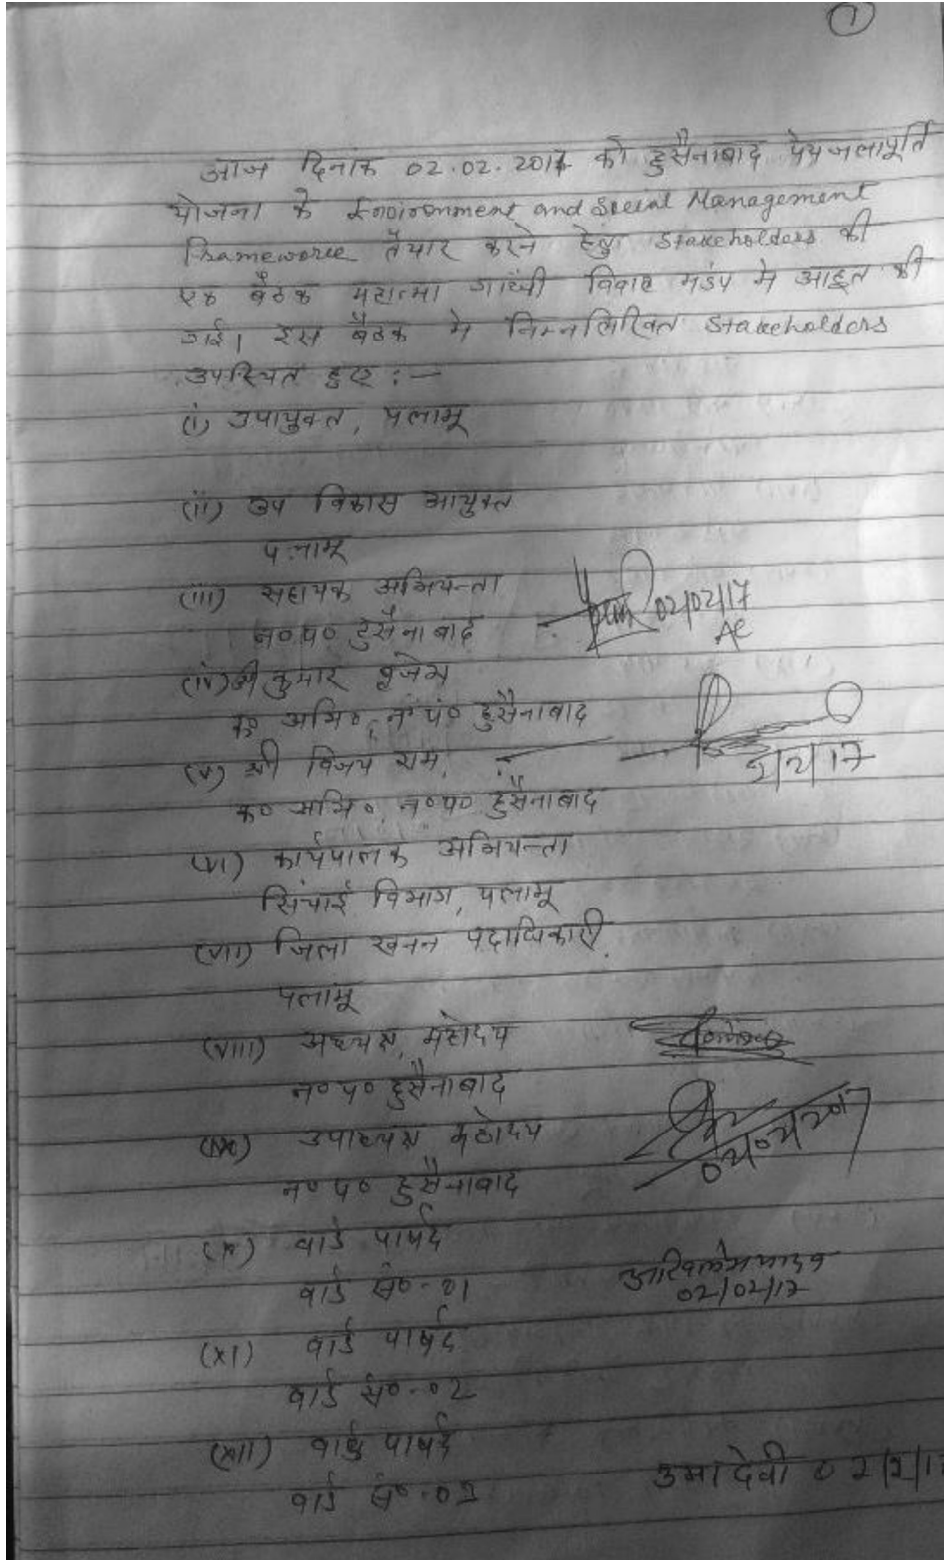 1
आज दिनांक 02.02.2017 को हुसैनाबाद पेयजलापूर्ति
योजना के Environment and Social Management
Framework तैयार करने हेतु Stakeholders की
एक बैठक महात्मा गांधी विवाह मंडप मे आहूत की
गई। इस बैठक मे निम्नलिखित Stakeholders
उपस्थित हुए :-
(i) उपायुक्त, पलामू
(ii) उप विकास आयुक्त
पलामू
(iii) सहायक अभियन्ता
02/02/17
न०प० हुसैनाबाद
AE
(iv) श्री कुमार बृजेश
क० अभि०, न० पं० हुसैनाबाद
(v) श्री विजय राम,
2/2/17
क० अभि०, न०प० हुसैनाबाद
(vi) कार्यपालक अभियन्ता
सिंचाई विभाग, पलामू
(vii) जिला खनन पदाधिकारी,
पलामू
(viii) अध्यक्ष, महोदय
न०प० हुसैनाबाद
(ix) उपाध्यक्ष महोदय
न०प० हुसैनाबाद
02/02/2017
(x) वार्ड पार्षद
वार्ड सं०-01
अखिलेश यादव
02/02/17
(xi) वार्ड पार्षद
वार्ड सं०-02
(xii) वार्ड पार्षद
वार्ड सं०-03
उमा देवी 02/2/17